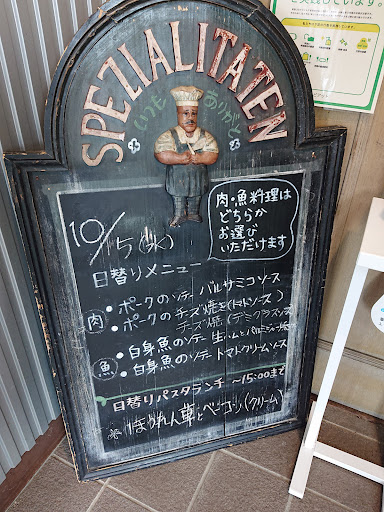 SPEZIALITATEN
いつも
ありがとう
肉・魚料理は
どちらか
お選び
いただけます
10/5(水)
日替りメニュー
肉
・ポークのソテー バルサミコソース
・ポークのチーズ焼き(トマトソース)
チーズ焼(デミグラスソース)
魚
・白身魚のソテー 生ハムと
・白身魚のソテー トマトクリームソース
日替りパスタランチ ～15:00まで
※ ほうれん草とベーコン(クリーム)